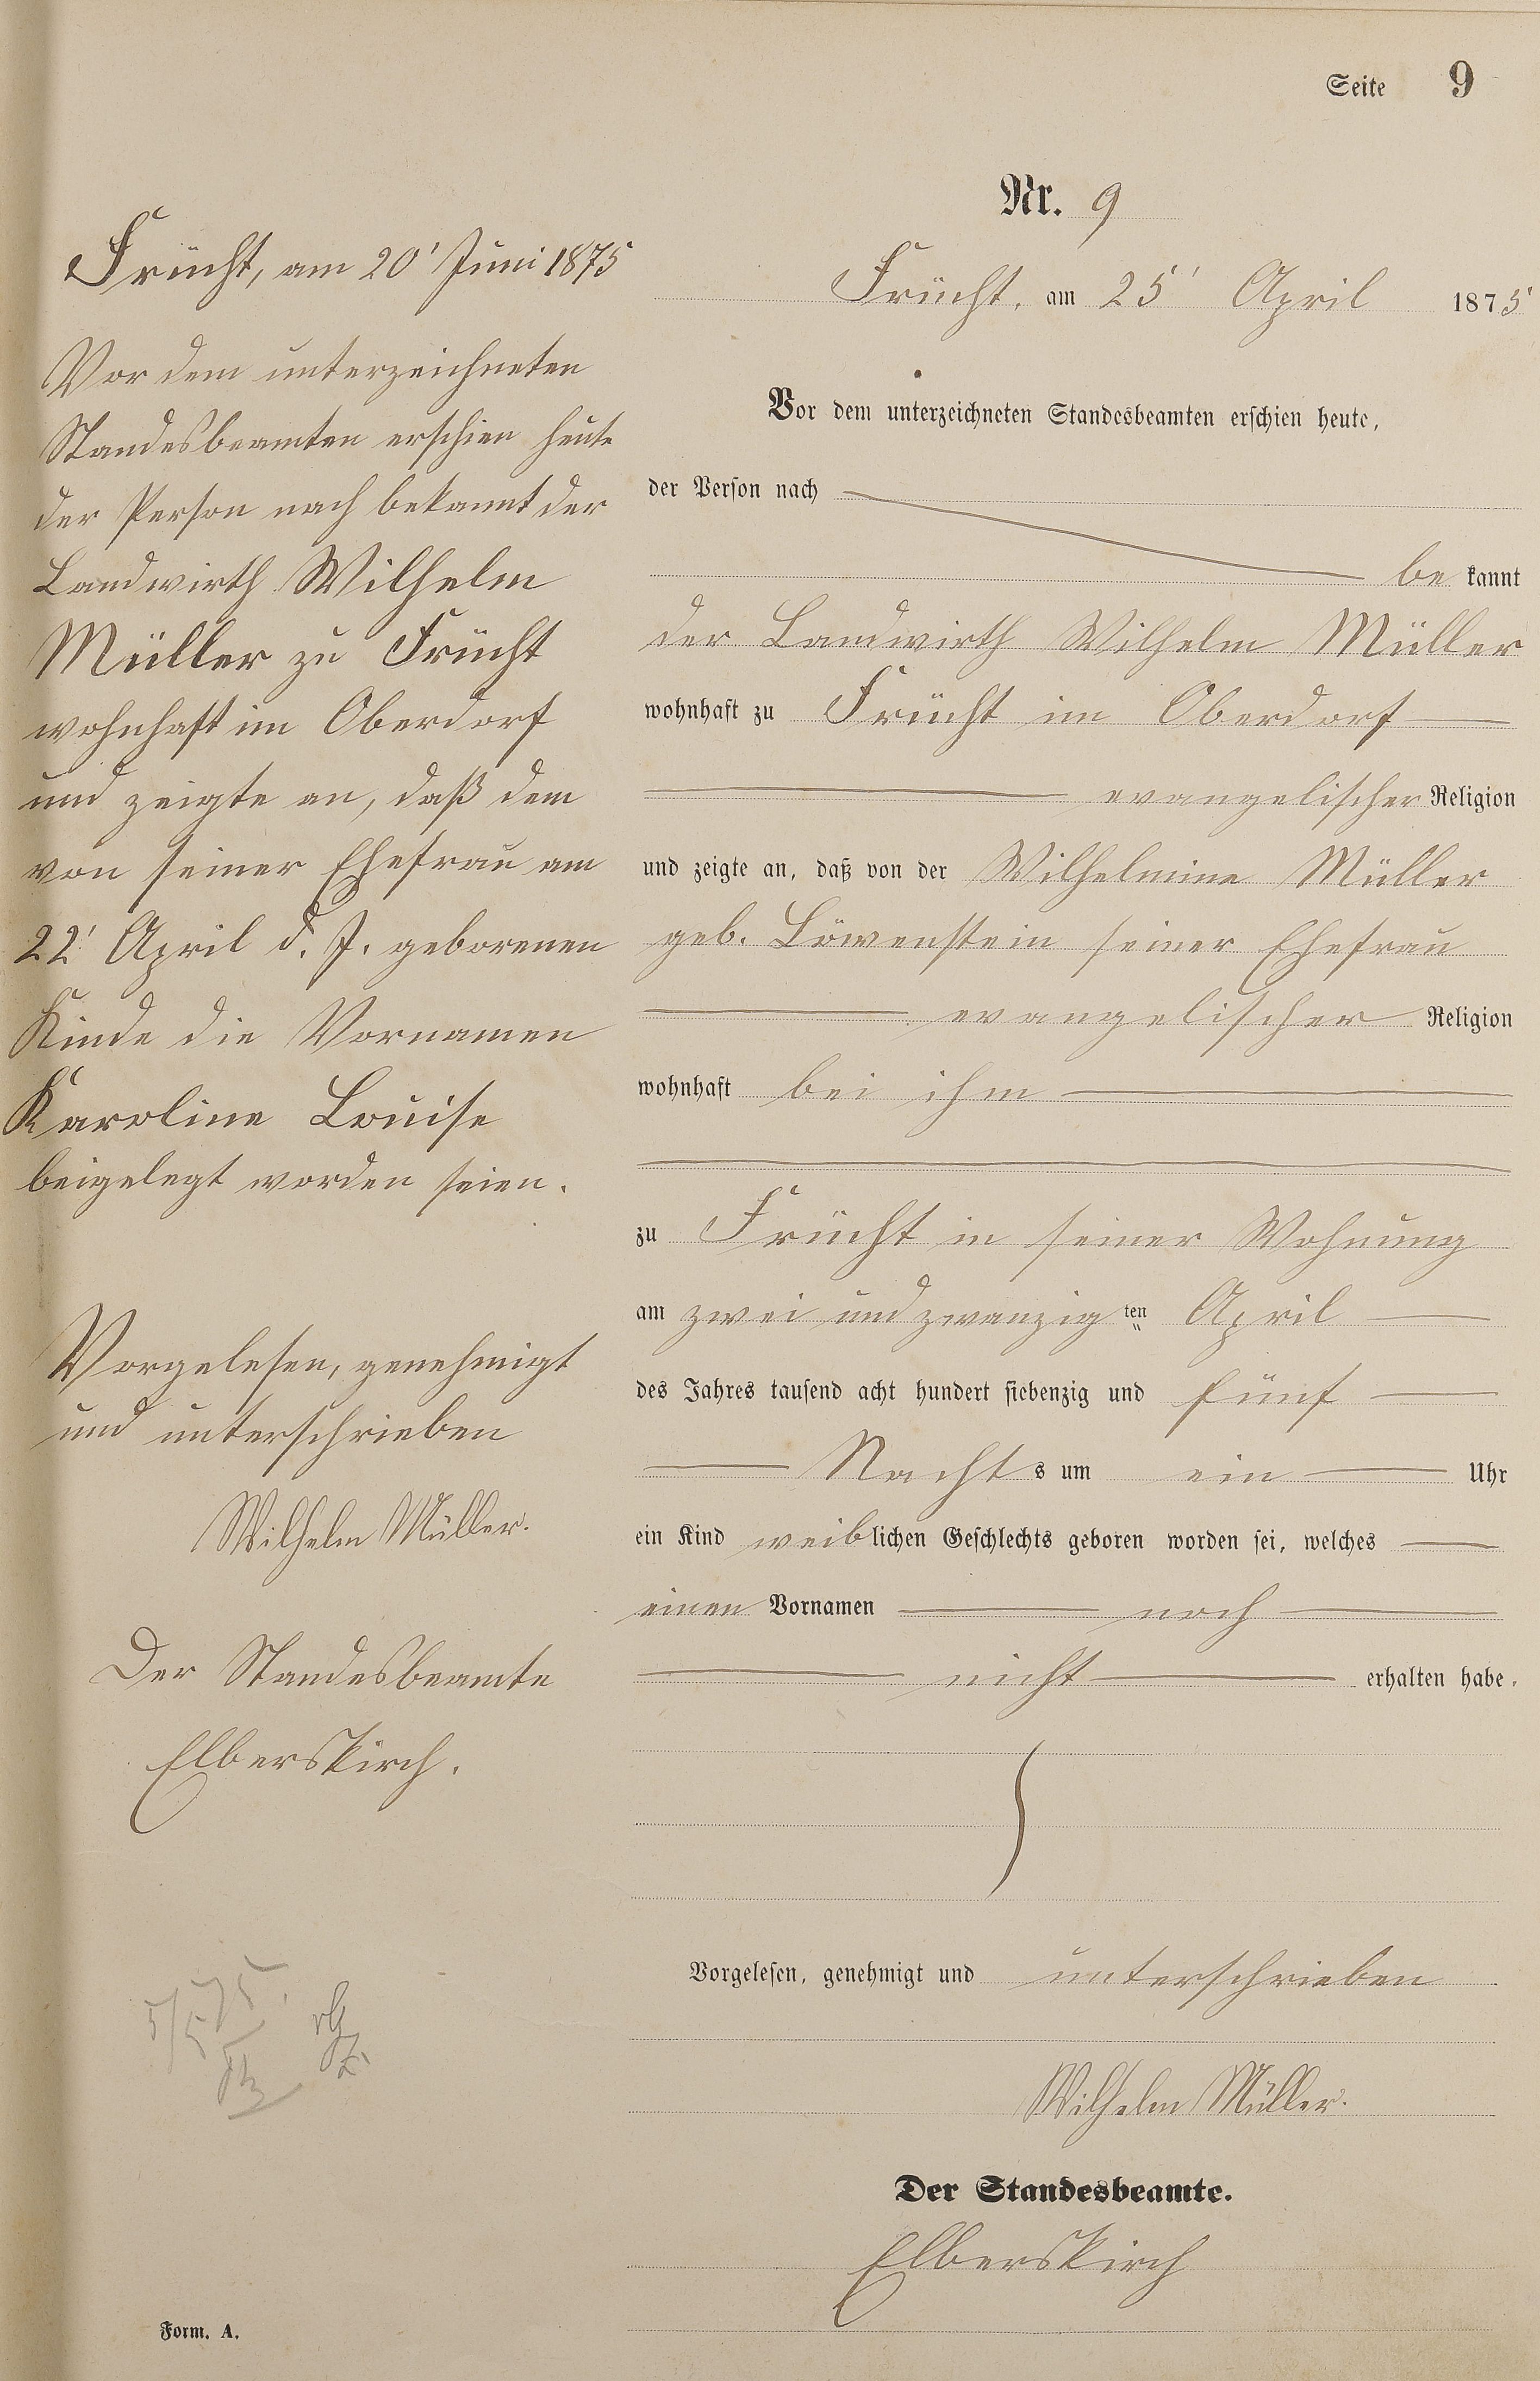 Seite 9
Nr. 9
Frücht, am 25' April 1875
Vor dem unterzeichneten Standesbeamten erschien heute,
der Person nach
be kannt
der Landwirth Wilhelm Müller
wohnhaft zu Frücht im Oberdorf
evangelischer Religion
und zeigte an, daß von der Wilhelmine Müller
geb. Löwenstein seiner Ehefrau
evangelischer Religion
wohnhaft bei ihm
zu Frücht in seiner Wohnung
am zwei und zwanzig ten April
des Jahres tausend acht hundert siebenzig und fünf
Nachts um ein Uhr
ein Kind weiblichen Geschlechts geboren worden sei, welches
einen Vornamen noch
nicht erhalten habe.
Vorgelesen, genehmigt und unterschrieben
Wilhelm Müller.
Der Standesbeamte.
Elberskirch
Frücht, am 20' Juni 1875
Vor dem unterzeichneten
Standesbeamten erschien heute
der Person nach bekannt der
Landwirth Wilhelm
Müller zu Frücht
wohnhaft im Oberdorf
und zeigte an, daß dem
von seiner Ehefrau am
22' April d. J. geborenen
Kinde die Vornamen
Karoline Louise
beigelegt worden seien.
Vorgelesen, genehmigt
und unterschrieben
Wilhelm Müller.
Der Standesbeamte
Elberskirch.
Form. A.